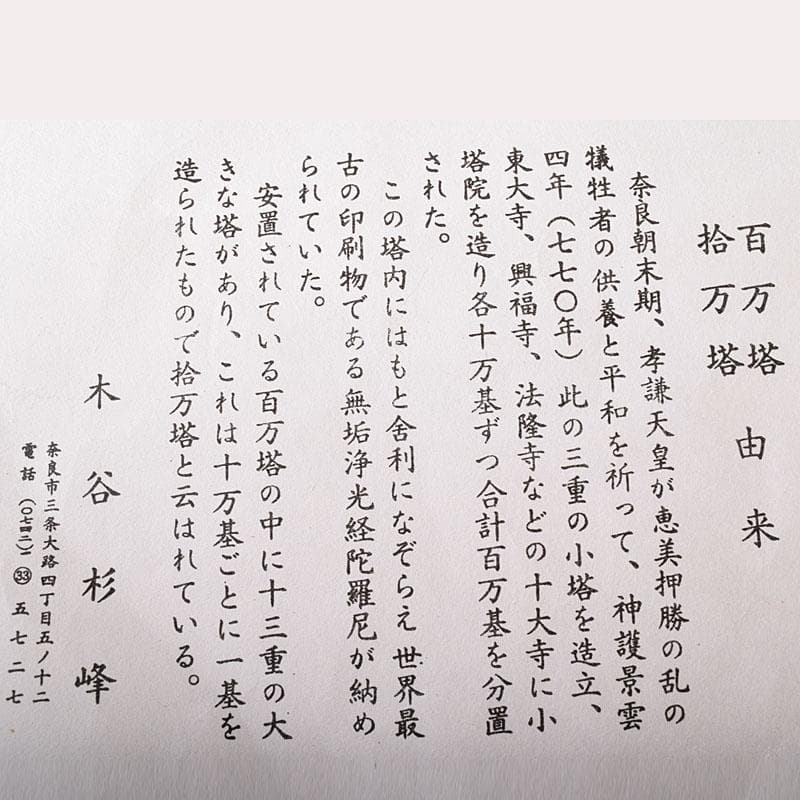 百万塔
拾万塔 由来
奈良朝末期、孝謙天皇が恵美押勝の乱の
犠牲者の供養と平和を祈って、神護景雲
四年（七七〇年）此の三重の小塔を造立、
東大寺、興福寺、法隆寺などの十大寺に小
塔院を造り各十万基ずつ合計百万基を分置
された。
この塔内にはもと舍利になぞらえ世界最
古の印刷物である無垢浄光経陀羅尼が納め
られていた。
安置されている百万塔の中に十三重の大
きな塔があり、これは十万基ごとに一基を
造られたもので拾万塔と云はれている。
木谷杉峰
奈良市三条大路四丁目五ノ十二
電話（〇七四二）㉝五七二七